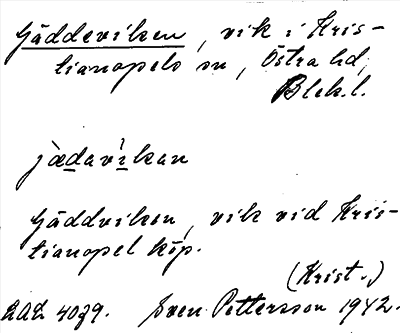 Gäddeviken, vik i Kris-
tianopels sn, Östra hd,
Blek.l.
jädavìkan
Gäddviken, vik vid Kris-
tianopel köp.
(Krist.)
Sven Pettersson 1942.